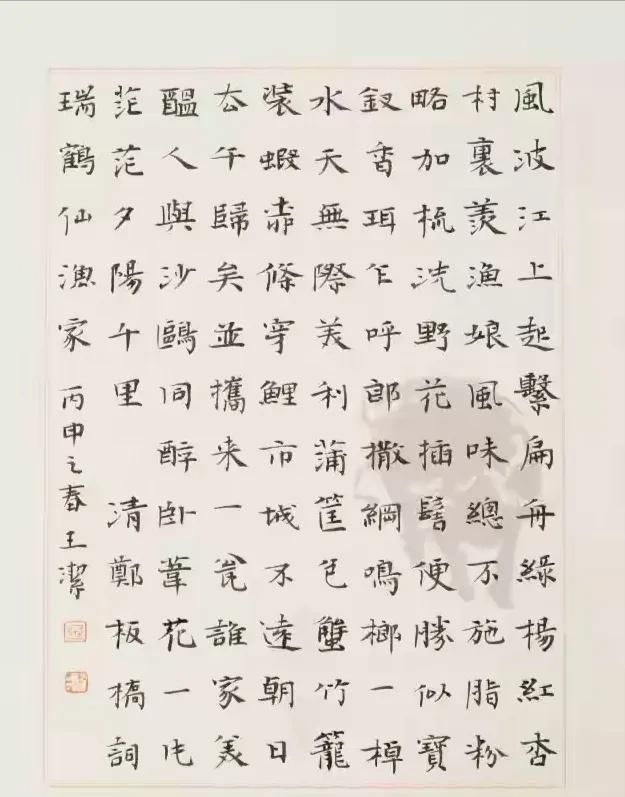 風波江上起繫扁舟綠楊紅杏
村裏羨漁娘風味總不施脂粉
略加梳洗野花插髻便勝似寶
釵香珥乍呼郎撒網鳴榔一棹
水天無際美利蒲筐包蟹竹籠
裝蝦條穿鯉市城不遠朝日
去午歸矣並攜来一瓮誰家美
醖人與沙鷗同醉卧葦花一片
茫茫夕陽千里 清鄭板橋詞
瑞鶴仙漁家 丙申之春王潔